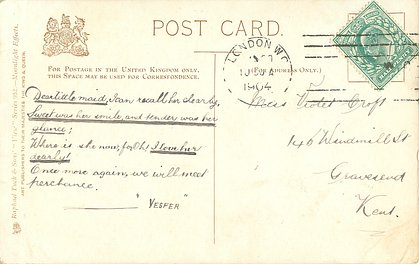 POST CARD.
FOR POSTAGE IN THE UNITED KINGDOM ONLY,
THIS SPACE MAY BE USED FOR CORRESPONDENCE.
(FOR ADDRESS ONLY.)
LONDON W.C.
1904
Dear little maid, I can recall her clearly,
Sweet was her smile, and tender was her
glance;
Where is she now; for Oh! I love her
dearly!
Once more again, we will meet
perchance.
"VESPER"
Miss Violet Croft
146 Windmill St
Gravesend
Kent.
Raphael Tuck & Sons'
ART PUBLISHERS TO THEIR MAJESTIES THE KING & QUEEN
Moonlight Effects.